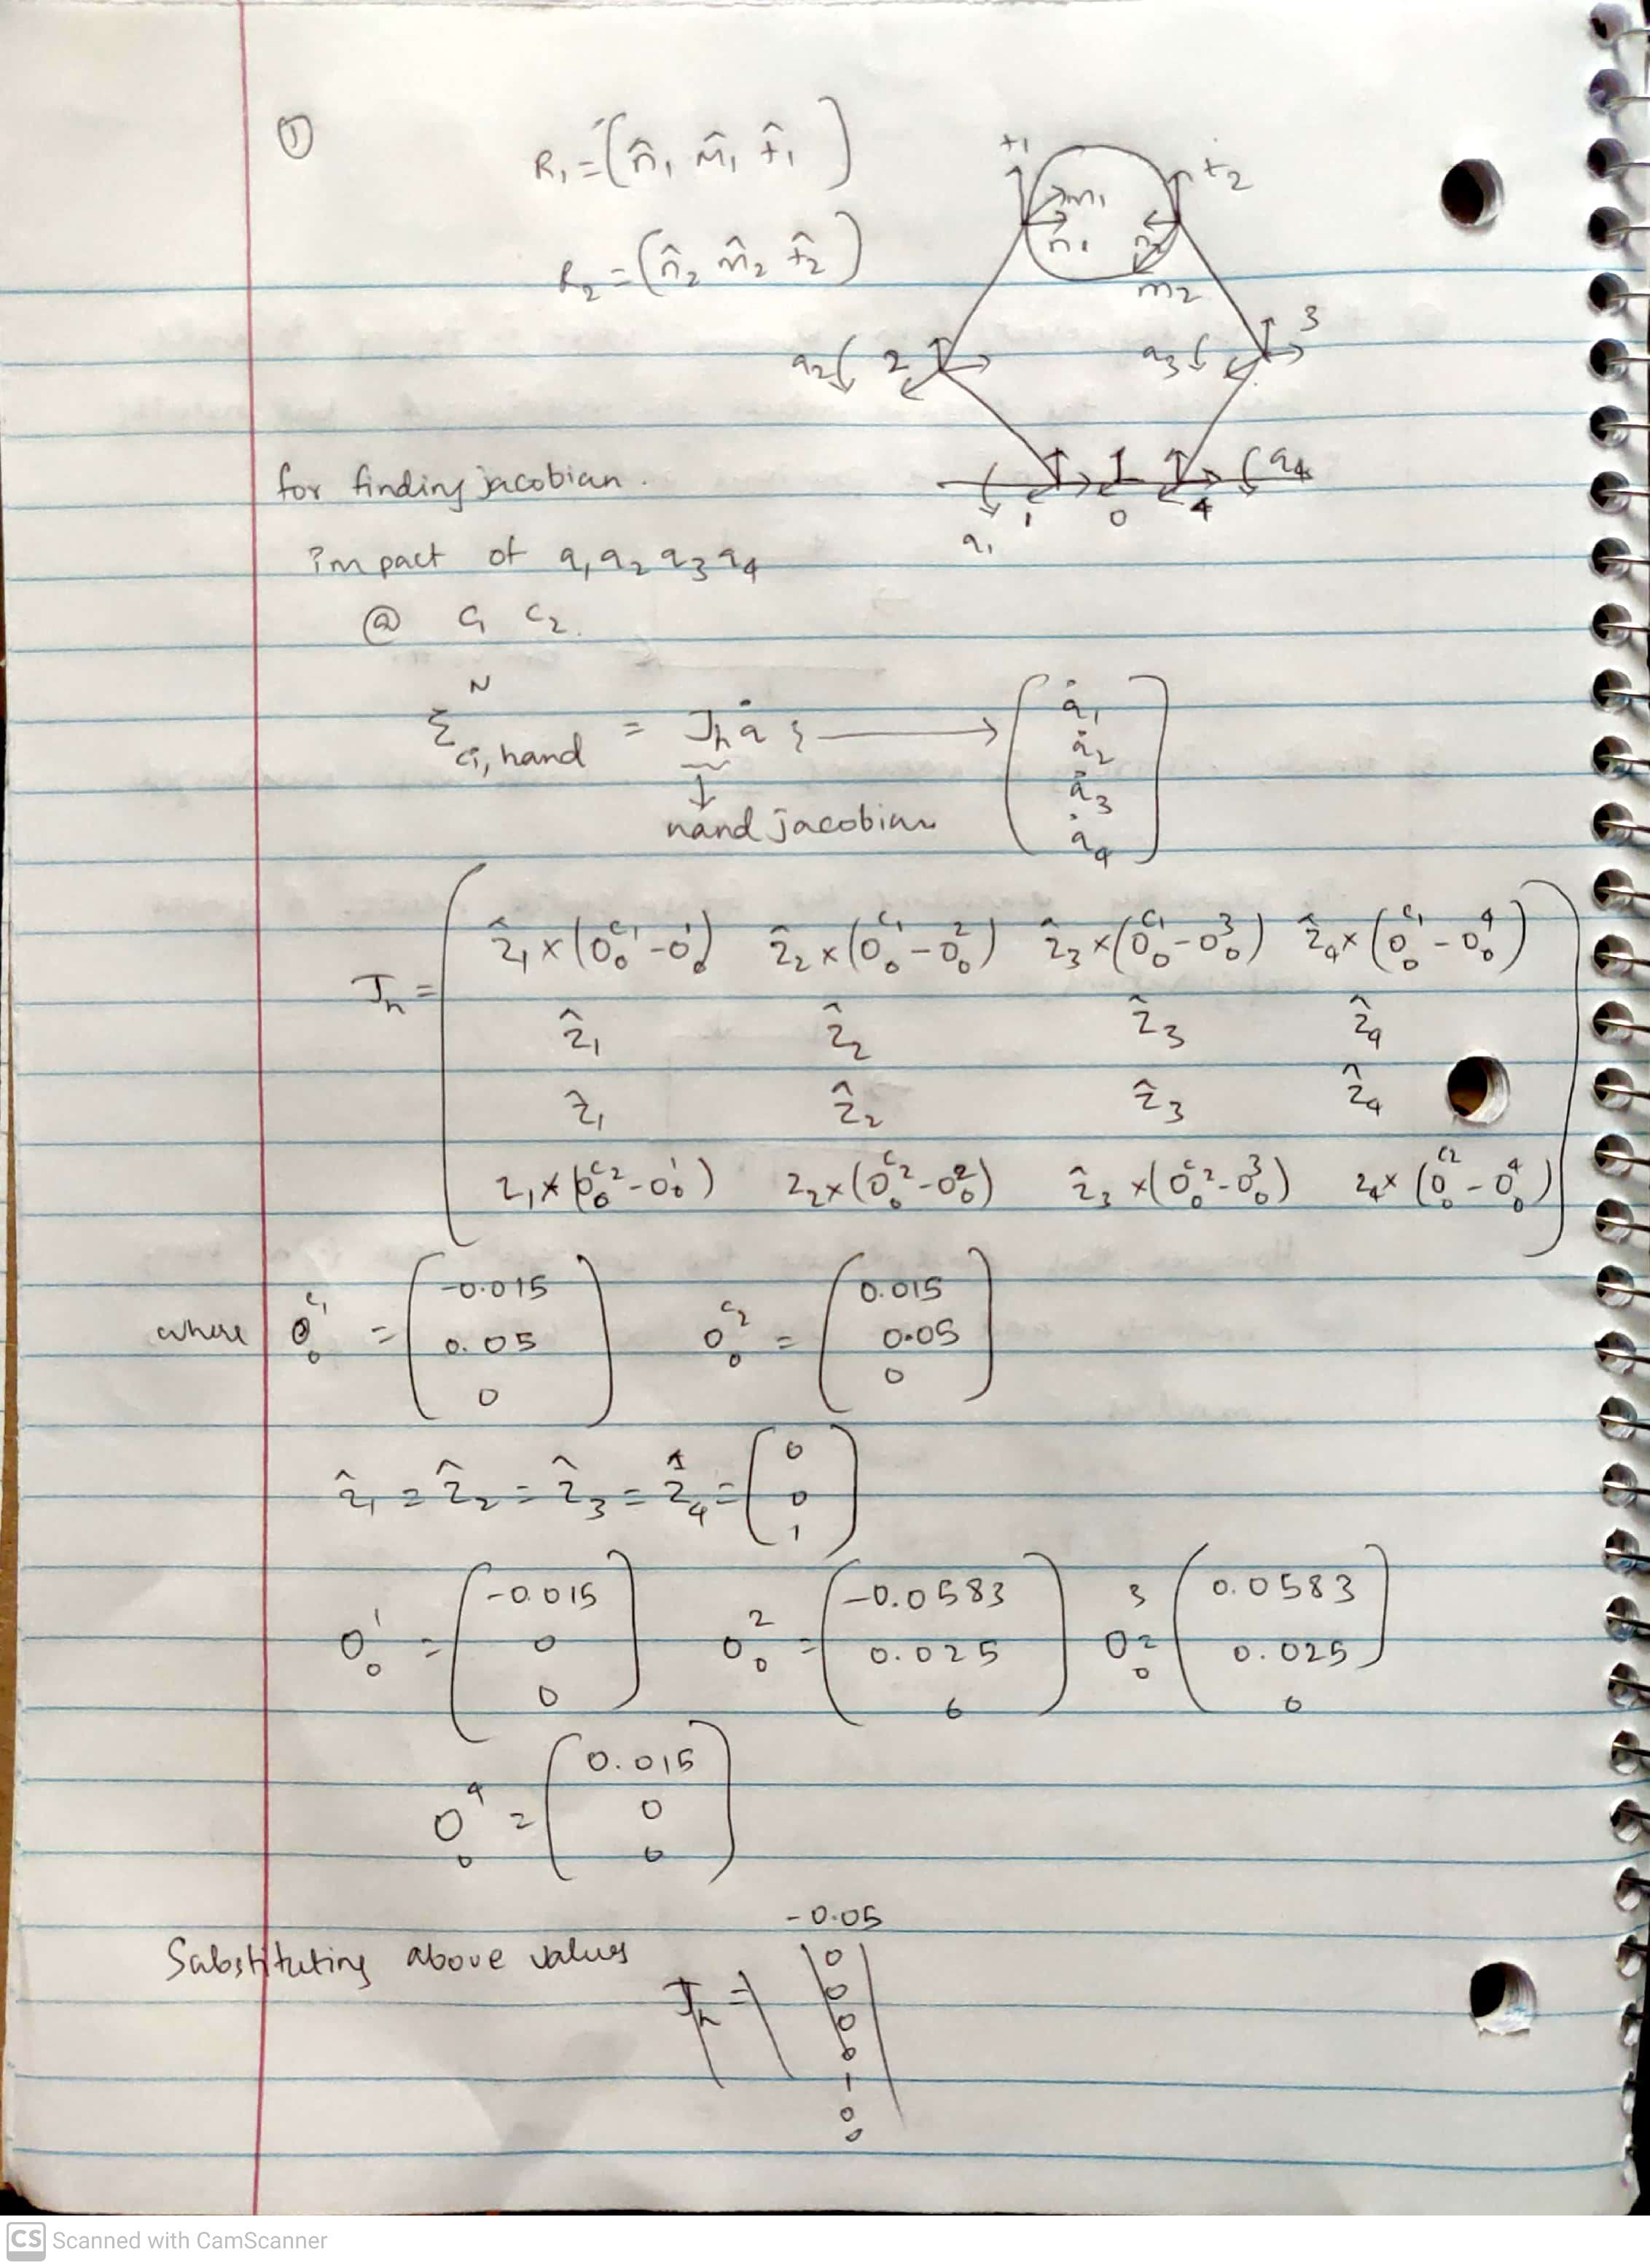 ①
R₁ = (n̂₁ m̂₁ t̂₁)
R₂ = (n̂₂ m̂₂ t̂₂)
t₁ t₂
m₁
n₁ n₂
m₂
q₂ 2 q₃ 3
q₁ 1 0 4 q₄
for finding jacobian.
impact of q₁ q₂ q₃ q₄
@ C₁ C₂.
ξ^N_{ci, hand} = J_h q̇ } → (q̇₁ q̇₂ q̇₃ q̇₄)
↓
hand jacobian
J_h =
ẑ₁×(O₀^{c₁}-O₀¹) ẑ₂×(O₀^{c₁}-O₀²) ẑ₃×(O₀^{c₁}-O₀³) ẑ₄×(O₀^{c₁}-O₀⁴)
ẑ₁ ẑ₂ ẑ₃ ẑ₄
ẑ₁ ẑ₂ ẑ₃ ẑ₄
z₁×(O₀^{c₂}-O₀¹) z₂×(O₀^{c₂}-O₀²) ẑ₃×(O₀^{c₂}-O₀³) z₄×(O₀^{c₂}-O₀⁴)
where O₀^{c₁} = (-0.015 0.05 0) O₀^{c₂} = (0.015 0.05 0)
ẑ₁ = ẑ₂ = ẑ₃ = ẑ₄ = (0 0 1)
O₀¹ = (-0.015 0 0) O₀² = (-0.0583 0.025 0) O₀³ = (0.0583 0.025 0)
O₀⁴ = (0.015 0 0)
Substituting above values
J_h =
-0.05
0
0
0
0
1
0
0
CS Scanned with CamScanner